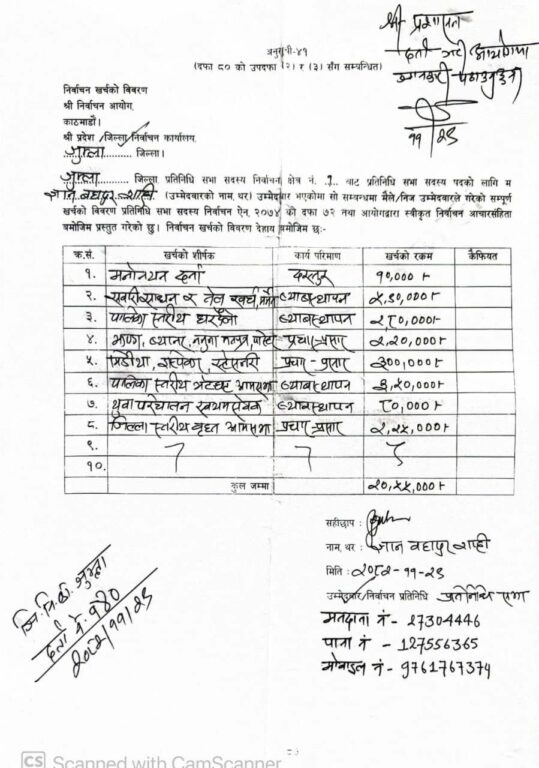 श्री प्रशासन
दर्ता गरी आयोगमा
अनुसूची-४१
(दफा ८० को उपदफा (२) र (३) सँग सम्बन्धित)
११/२९
निर्वाचन खर्चको विवरण
श्री निर्वाचन आयोग,
काठमाडौं।
श्री प्रदेश/जिल्ला/निर्वाचन कार्यालय,
जुम्ला जिल्ला।
जुम्ला जिल्ला प्रतिनिधि सभा सदस्य निर्वाचन क्षेत्र नं. १ बाट प्रतिनिधि सभा सदस्य पदको लागि म
ज्ञान बहादुर शाही (उम्मेदवारको नाम, थर) उम्मेदवार भएकोमा सो सम्बन्धमा मैले/निज उम्मेदवारले गरेको सम्पूर्ण
खर्चको विवरण प्रतिनिधि सभा सदस्य निर्वाचन ऐन, २०७४ को दफा ७२ तथा आयोगद्वारा स्वीकृत निर्वाचन आचारसंहिता
बमोजिम प्रस्तुत गरेको छु। निर्वाचन खर्चको विवरण देहाय बमोजिम छः-
क.सं. खर्चको शीर्षक कार्य परिमाण खर्चको रकम कैफियत
१. मनोनयन दर्ता दस्तुर १०,०००।-
२. सवारी साधन र तेल खर्च, व्यावस्थापन ५,३०,०००।-
३. पालिका स्तरीय घरदैलो व्यावस्थापन २,८०,०००।-
४. झण्डा, ब्यानर, नमुना मतपत्र, प्रचार-प्रसार २,२०,०००।-
५. मिडिया, स्टेसनरी प्रचार-प्रसार ३००,०००।-
६. पालिका स्तरीय भेटघाट आमसभा व्यावस्थापन ३,५०,०००।-
७. युवा परिचालन स्वयमसेवक व्यावस्थापन ८०,०००।-
८. जिल्ला स्तरीय बृहत आमसभा प्रचार-प्रसार २,८५,०००।-
९.
१०.
कुल जम्मा २०,५५,०००।-
सहीछाप :
नाम, थर : ज्ञान बहादुर शाही
मिति : २०८२-११-२९
उम्मेदवार/निर्वाचन प्रतिनिधि प्रतिनिधि सभा
मतदाता नं - 27304446
पाना नं - 127556365
मोबाइल नं - 9761767374
जि.नि.का. जुम्ला
दर्ता नं. १४०
२०८२/११/२९
CS Scanned with CamScanner